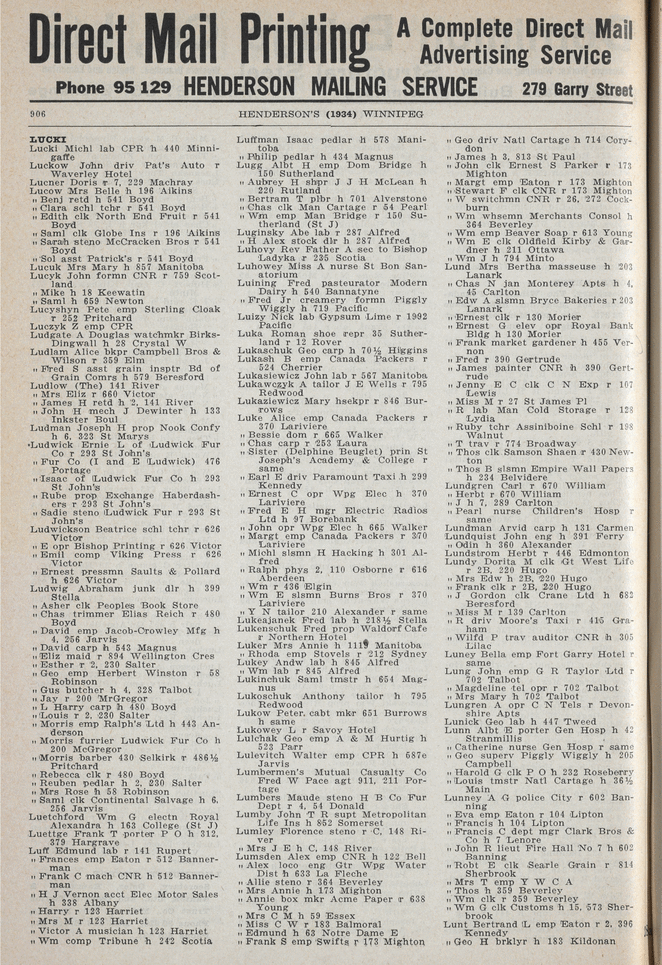 Direct Mail Printing
A Complete Direct Mail
Advertising Service
Phone 95 129 HENDERSON MAILING SERVICE 279 Garry Street
906 HENDERSON'S (1934) WINNIPEG
LUCKI
Lucki Michl lab CPR h 440 Minni-
gaffe
Luckow John driv Pat's Auto r
Waverley Hotel
Lucner Doris r 7, 229 Machray
Lucow Mrs Belle h 196 Aikins
" Benj retd h 541 Boyd
" Clara schl tchr r 541 Boyd
" Edith clk North End Fruit r 541
Boyd
" Saml clk Globe Ins r 196 Aikins
" Sarah steno McCracken Bros r 541
Boyd
" Sol asst Patrick's r 541 Boyd
Lucuk Mrs Mary h 857 Manitoba
Lucyk John formn CNR r 759 Scot-
land
" Mike h 18 Keewatin
" Saml h 659 Newton
Lucyshyn Pete emp Sterling Cloak
r 252 Pritchard
Luczyk Z emp CPR
Ludgate A Douglas watchmkr Birks-
Dingwall h 28 Crystal W
Ludlam Alice bkpr Campbell Bros &
Wilson r 359 Elm
" Fred S asst grain insptr Bd of
Grain Comrs h 579 Beresford
Ludlow (The) 141 River
" Mrs Eliz r 660 Victor
" James H retd h 2, 141 River
" John H mech J Dewinter h 133
Inkster Boul
Ludman Joseph H prop Nook Confy
h 6, 323 St Marys
Ludwick Ernie L of Ludwick Fur
Co r 293 St John's
" Fur Co (I and E Ludwick) 476
Portage
" Isaac of Ludwick Fur Co h 293
St John's
" Rube prop Exchange Haberdash-
ers r 293 St John's
" Sadie steno Ludwick Fur r 293 St
John's
Ludwickson Beatrice schl tchr r 626
Victor
" E opr Bishop Printing r 626 Victor
" Emil comp Viking Press r 626
Victor
" Ernest pressmn Saults & Pollard
h 626 Victor
Ludwig Abraham junk dlr h 399
Stella
" Asher clk Peoples Book Store
" Chas trimmer Elias Reich r 480
Boyd
" David emp Jacob-Crowley Mfg h
4, 256 Jarvis
" David carp h 543 Magnus
" Eliz maid r 894 Wellington Cres
" Esther r 2, 230 Salter
" Geo emp Herbert Winston r 58
Robinson
" Gus butcher h 4, 328 Talbot
" Jay r 200 McGregor
" L Harry carp h 480 Boyd
" Louis r 2, 230 Salter
" Morris emp Ralph's Ltd h 443 An-
derson
" Morris furrier Ludwick Fur Co h
200 McGregor
" Morris barber 430 Selkirk r 486½
Pritchard
" Rebecca clk r 480 Boyd
" Reuben pedlar h 2, 230 Salter
" Mrs Rose h 58 Robinson
" Saml clk Continental Salvage h 6,
256 Jarvis
Luetchford Wm G electn Royal
Alexandra h 163 College (St J)
Luettge Frank T porter P O h 312,
379 Hargrave
Luff Edmund lab r 141 Rupert
" Frances emp Eaton r 512 Banner-
man
" Frank C mach CNR h 512 Banner-
man
" H J Vernon acct Elec Motor Sales
h 338 Albany
" Harry r 123 Harriet
" Mrs M r 123 Harriet
" Victor A musician h 123 Harriet
" Wm comp Tribune h 242 Scotia
Luffman Isaac pedlar h 578 Mani-
toba
" Philip pedlar h 434 Magnus
Lugg Albt H emp Dom Bridge h
150 Sutherland
" Aubrey H shpr J J H McLean h
220 Rutland
" Bertram T plbr h 701 Alverstone
" Chas clk Man Cartage r 54 Pearl
" Wm emp Man Bridge r 150 Su-
therland (St J)
Luginsky Abe lab r 287 Alfred
" H Alex stock dlr h 287 Alfred
Luhovy Rev Father A sec to Bishop
Ladyka r 235 Scotia
Luhowey Miss A nurse St Bon San-
atorium
Luining Fred pasteurator Modern
Dairy h 540 Bannatyne
" Fred Jr creamery formn Piggly
Wiggly h 719 Pacific
Luizy Nick lab Gypsum Lime r 1992
Pacific
Luka Roman shoe repr 35 Suther-
land r 12 Rover
Lukaschuk Geo carp h 70½ Higgins
Lukash B emp Canada Packers r
524 Cherrier
Lukasiewicz John lab r 567 Manitoba
Lukawczyk A tailor J E Wells r 795
Redwood
Lukaziewicz Mary hsekpr r 846 Bur-
rows
Luke Alice emp Canada Packers r
370 Lariviere
" Bessie dom r 665 Walker
" Chas carp r 253 Laura
" Sister (Delphine Beuglet) prin St
Joseph's Academy & College r
same
" Earl E driv Paramount Taxi h 299
Kennedy
" Ernest C opr Wpg Elec h 370
Lariviere
" Fred E H mgr Electric Radios
Ltd h 97 Borebank
" John opr Wpg Elec h 665 Walker
" Margt emp Canada Packers r 370
Lariviere
" Michl slsmn H Hacking h 301 Al-
fred
" Ralph phys 2, 110 Osborne r 616
Aberdeen
" Wm r 436 Elgin
" Wm E slsmn Burns Bros r 370
Lariviere
" Y N tailor 210 Alexander r same
Lukeajanek Fred lab h 218½ Stella
Lukenschuk Fred prop Waldorf Cafe
r Northern Hotel
Luker Mrs Annie h 1119 Manitoba
" Rhoda emp Stovels r 212 Sydney
Lukey Andw lab h 845 Alfred
" Wm lab r 845 Alfred
Lukinchuk Saml tmstr h 654 Mag-
nus
Lukoschuk Anthony tailor h 795
Redwood
Lukow Peter cabt mkr 651 Burrows
h same
Lukowey L r Savoy Hotel
Lulchak Geo emp A & M Hurtig h
523 Parr
Lulevitch Walter emp CPR h 687e
Jarvis
Lumbermen's Mutual Casualty Co
Fred W Pace agt 911, 211 Por-
tage
Lumbers Maude steno H B Co Fur
Dept r 4, 54 Donald
Lumby John T R supt Metropolitan
Life Ins h 852 Somerset
Lumley Florence steno r C, 148 Ri-
ver
" Mrs J E h C, 148 River
Lumsden Alex emp CNR h 122 Bell
" Alex loco eng Gtr Wpg Water
Dist h 633 La Fleche
" Allie steno r 364 Beverley
" Mrs Annie h 173 Mighton
" Annie box mkr Acme Paper r 638
Young
" Mrs C M h 59 Essex
" Miss C W r 183 Balmoral
" Edmund h 63 Notre Dame E
" Frank S emp Swifts r 173 Mighton
" Geo driv Natl Cartage h 714 Cory-
don
" James h 3, 813 St Paul
" John clk Ernest S Parker r 173
Mighton
" Margt emp Eaton r 173 Mighton
" Stewart F clk CNR r 173 Mighton
" W switchmn CNR r 26, 272 Cock-
burn
" Wm whsemn Merchants Consol h
364 Beverley
" Wm emp Beaver Soap r 613 Young
" Wm E clk Oldfield Kirby & Gar-
dner h 211 Ottawa
" Wm J h 794 Minto
Lund Mrs Bertha masseuse h 203
Lanark
" Chas N jan Monterey Apts h 4,
45 Carlton
" Edw A slsmn Bryce Bakeries r 203
Lanark
" Ernest clk r 130 Morier
" Ernest G elev opr Royal Bank
Bldg h 130 Morier
" Frank market gardener h 455 Ver-
non
" Fred r 390 Gertrude
" James painter CNR h 390 Gert-
rude
" Jenny E C clk C N Exp r 107
Lewis
" Miss M r 27 St James Pl
" R lab Man Cold Storage r 128
Lydia
" Ruby tchr Assiniboine Schl r 198
Walnut
" T trav r 774 Broadway
" Thos clk Samson Shaen r 430 New-
ton
" Thos B slsmn Empire Wall Papers
h 234 Belvidere
Lundgren Carl r 670 William
" Herbt r 670 William
" J h 7, 289 Carlton
" Pearl nurse Children's Hosp r
same
Lundman Arvid carp h 131 Carmen
Lundquist John eng h 391 Ferry
" Odin h 360 Alexander
Lundstrom Herbt r 446 Edmonton
Lundy Dorita M clk Gt West Life
r 2B, 220 Hugo
" Mrs Edw h 2B, 220 Hugo
" Frank clk r 2B, 220 Hugo
" J Gordon clk Crane Ltd h 682
Beresford
" Miss M r 139 Carlton
" R driv Moore's Taxi r 415 Gra-
ham
" Wilfd P trav auditor CNR h 305
Lilac
Luney Bella emp Fort Garry Hotel r
same
Lung John emp G R Taylor Ltd r
702 Talbot
" Magdeline tel opr r 702 Talbot
" Mrs Mary h 702 Talbot
Lungren A opr C N Tels r Devon-
shire Apts
Lunick Geo lab h 447 Tweed
Lunn Albt E porter Gen Hosp h 42
Stranmillis
" Catherine nurse Gen Hosp r same
" Geo superv Piggly Wiggly h 205
Campbell
" Harold G clk P O h 232 Roseberry
" Louis tmstr Natl Cartage h 36½
Main
Lunney A G police City r 602 Ban-
ning
" Eva emp Eaton r 104 Lipton
" Francis h 104 Lipton
" Francis C dept mgr Clark Bros &
Co h 7 Lenore
" John R lieut Fire Hall No 7 h 602
Banning
" Robt E clk Searle Grain r 814
Sherbrook
" Mrs T emp Y W C A
" Thos h 359 Beverley
" Wm clk r 359 Beverley
" Wm G clk Customs h 15, 573 Sher-
brook
Lunt Bertrand L emp Eaton r 2, 396
Kennedy
" Geo H brklyr h 183 Kildonan